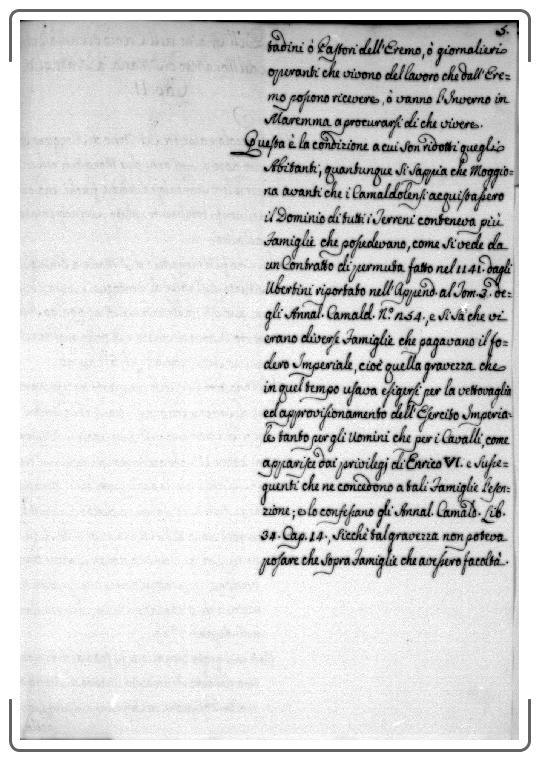 5.
tadini ò Pastori dell'Eremo, ò giornalieri
operanti che vivono del lavoro che dall'Ere=
mo possono ricevere, ò vanno l'Inverno in
Maremma a procurarsi di che vivere.
Questa è la condizione a cui son ridotti quegli
Abitanti, quantunque si sappia che Moggio=
na avanti che i Camaldolensi acquistassero
il Dominio di tutti i Terreni conteneva più
Famiglie che possedevano, come si vede da
un Contratto di permuta fatto nel 1141. dagli
Ubertini riportato nell'Append. al Tom. 3. de=
gli Annal. Camald. N.º 254., e si sà che vi
erano diverse Famiglie che pagavano il fo=
dero Imperiale, cioè quella gravezza che
in quel tempo usava esigersi per la vettovaglia
ed approvisionamento dell'Esercito Imperia=
le tanto per gli Uomini che per i Cavalli, come
apparisce dai privilegj di Enrico VI. e susse=
guenti che ne concedono a tali Famiglie l'esen=
zione; e lo confessano gli Annal. Camald. Lib.
34. Cap. 14., sicchè tal gravezza non poteva
posare che sopra Famiglie che avessero facoltà.